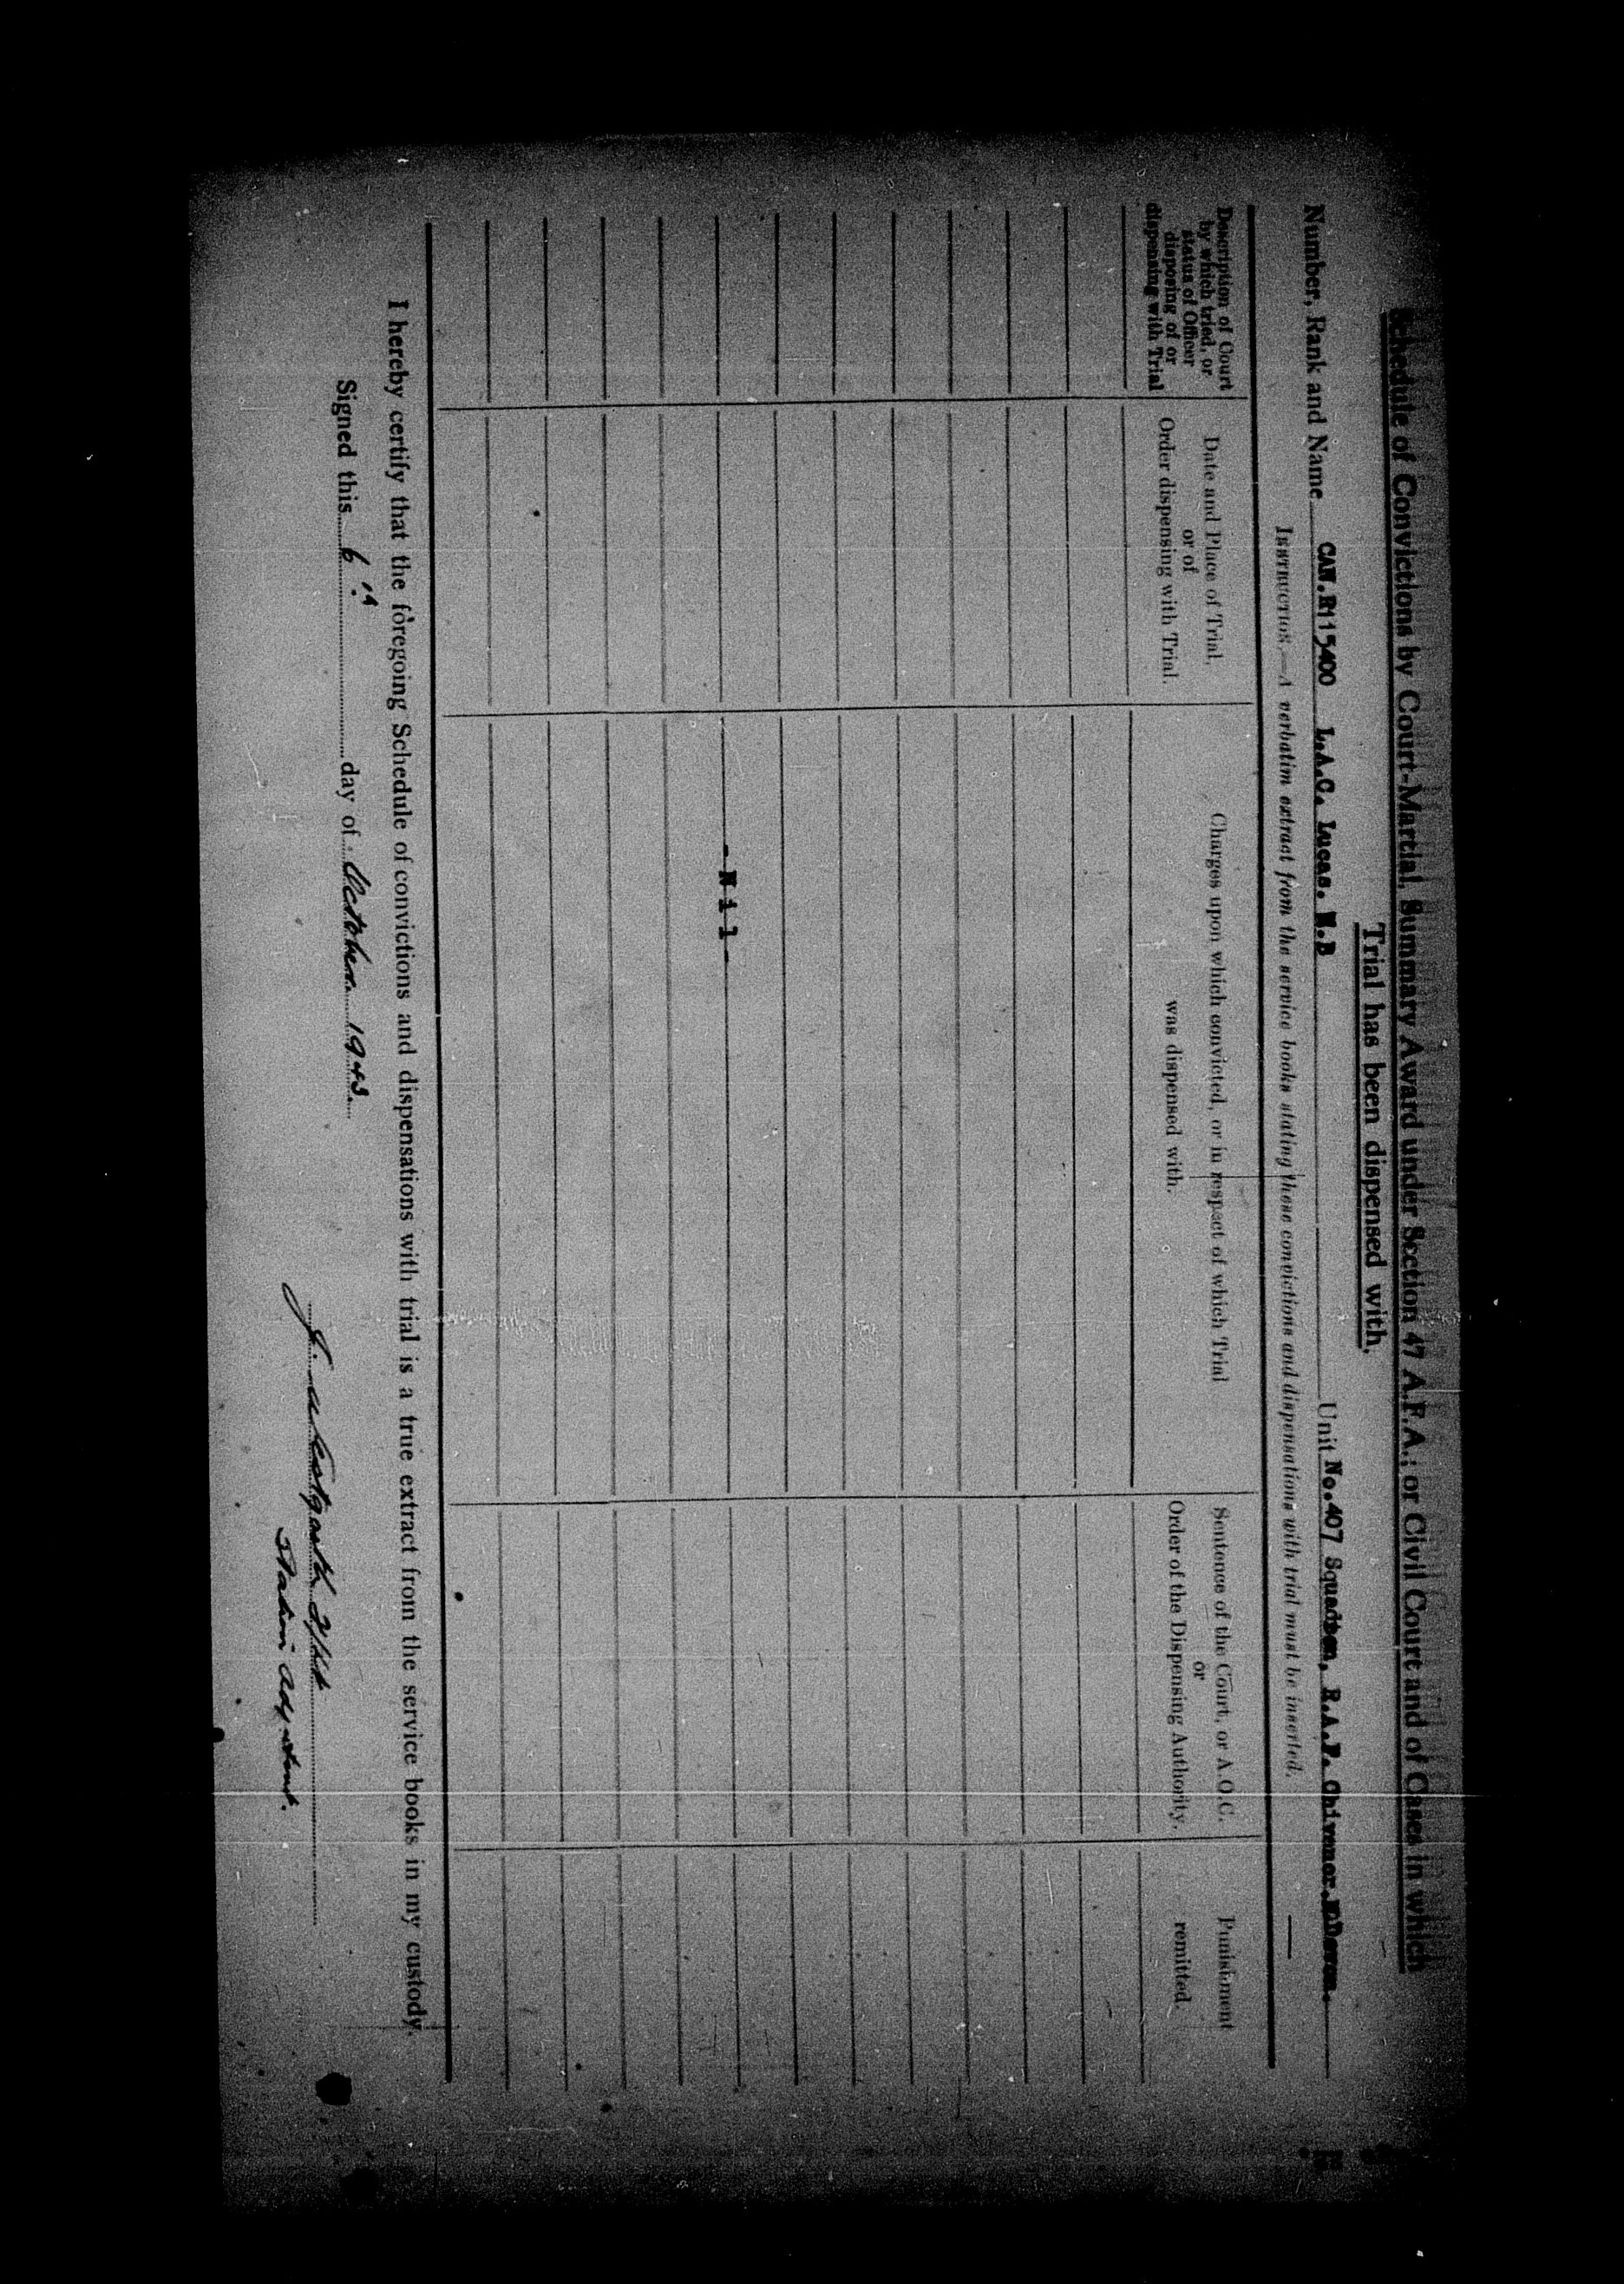 Schedule of Convictions by Court-Martial, Summary Award under Section 47 A.F.A.; or Civil Court and of Cases in which
Trial has been dispensed with.
Number, Rank and Name CAN.R115400 L.A.C. Lucas. M.B Unit No.407 Squadron, R.A.F. Chivenor. N.Devon.
INSTRUCTION.—A verbatim extract from the service books stating those convictions and dispensations with trial must be inserted.
Description of Court
by which tried, or
status of Officer
disposing of or
dispensing with Trial
Date and Place of Trial,
or of
Order dispensing with Trial.
Charges upon which convicted, or in respect of which Trial
was dispensed with.
Sentence of the Court, or A.O.C.
or
Order of the Dispensing Authority.
Punishment
remitted.
- N i l -
I hereby certify that the foregoing Schedule of convictions and dispensations with trial is a true extract from the service books in my custody.
Signed this 6th day of October 1943.
J.
Station Adjutant.